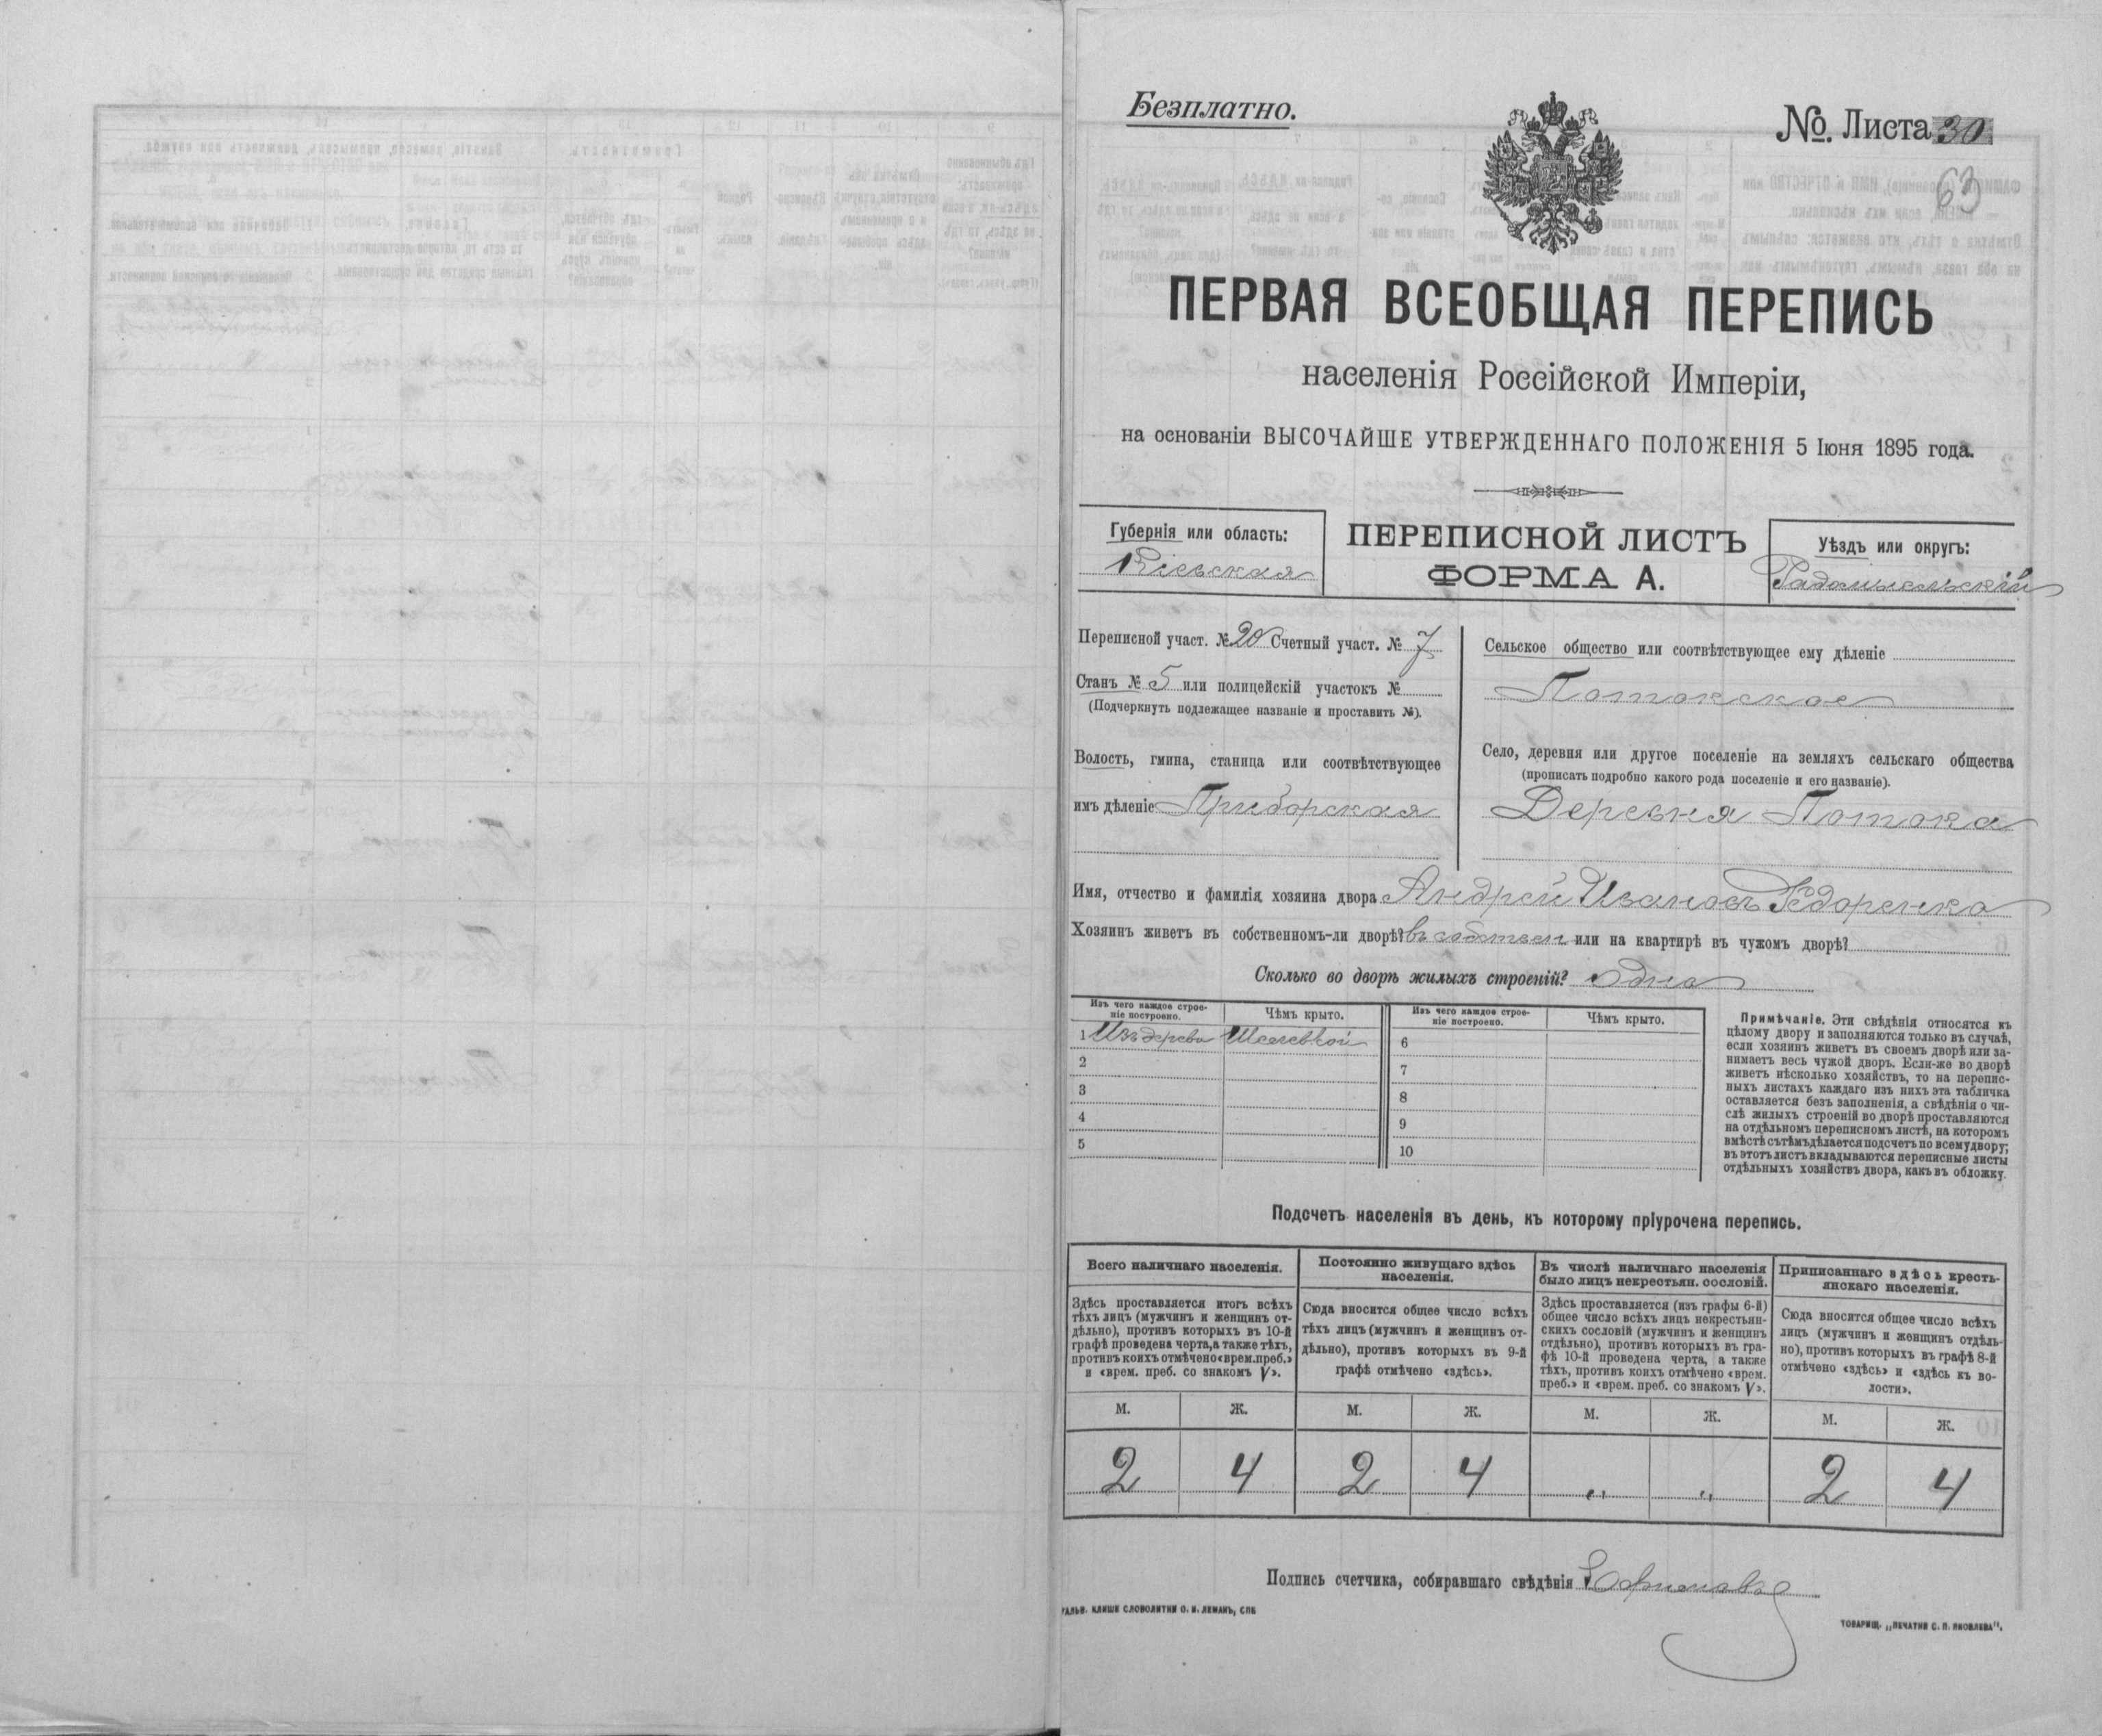 Безплатно.
№. Листа 30
63
ПЕРВАЯ ВСЕОБЩАЯ ПЕРЕПИСЬ
населенія Россійской Имперіи,
на основаніи ВЫСОЧАЙШЕ УТВЕРЖДЕННАГО ПОЛОЖЕНІЯ 5 Іюня 1895 года.
Губернія или область:
Кіевская
ПЕРЕПИСНОЙ ЛИСТЪ
ФОРМА А.
Уѣздъ или округъ:
Радомысльскій
Переписной участ. № 20 Счетный участ. № 7
Станъ № 5 или полицейскій участокъ №
(Подчеркнуть подлежащее названіе и проставить №).
Волость, гмина, станица или соотвѣтствующее
имъ дѣленіе Приборская
Сельское общество или соотвѣтствующее ему дѣленіе
Потокское
Село, деревня или другое поселеніе на земляхъ сельскаго общества
(прописать подробно какого рода поселеніе и его названіе).
Деревня Потока
Имя, отчество и фамилія хозяина двора Андрей Ивановъ Федоренко
Хозяинъ живетъ въ собственномъ-ли дворѣ? въ собствен или на квартирѣ въ чужомъ дворѣ?
Сколько во дворѣ жилыхъ строеній? одна
Изъ чего каждое строе-
ніе построено.
Чѣмъ крыто.
1 Изъ дерева
2
3
4
5
Изъ чего каждое строе-
ніе построено.
Чѣмъ крыто.
6
7
8
9
10
Примѣчаніе. Эти свѣдѣнія относятся къ
цѣлому двору и заполняются только въ случаѣ,
если хозяинъ живетъ въ своемъ дворѣ или за-
нимаетъ весь чужой дворъ. Если-же во дворѣ
живетъ нѣсколько хозяйствъ, то на перепис-
ныхъ листахъ каждаго изъ нихъ эта табличка
оставляется безъ заполненія, а свѣдѣнія о чи-
слѣ жилыхъ строеній во дворѣ проставляются
на отдѣльномъ переписномъ листѣ, на которомъ
вмѣстѣ съ тѣмъ дѣлается подсчетъ по всему двору;
въ этотъ листъ вкладываются переписные листы
отдѣльныхъ хозяйствъ двора, какъ въ обложку.
Подсчетъ населенія въ день, къ которому пріурочена перепись.
Всего наличнаго населенія.
Здѣсь проставляется итогъ всѣхъ
тѣхъ лицъ (мужчинъ и женщинъ от-
дѣльно), противъ которыхъ въ 10-й
графѣ проведена черта, а также тѣхъ,
противъ коихъ отмѣчено «врем. преб.»
и «врем. преб. со знакомъ V».
М. Ж.
2 4
Постоянно живущаго здѣсь
населенія.
Сюда вносится общее число всѣхъ
тѣхъ лицъ (мужчинъ и женщинъ от-
дѣльно), противъ которыхъ въ 9-й
графѣ отмѣчено «здѣсь».
М. Ж.
2 4
Въ числѣ наличнаго населенія
было лицъ некрестьян. сословій.
Здѣсь проставляется (изъ графы 6-й)
общее число всѣхъ лицъ некрестьян-
скихъ сословій (мужчинъ и женщинъ
отдѣльно), противъ которыхъ въ гра-
фѣ 10-й проведена черта, а также
тѣхъ, противъ коихъ отмѣчено «врем.
преб.» и «врем. преб. со знакомъ V».
М. Ж.
„ „
Приписаннаго здѣсь кресть-
янскаго населенія.
Сюда вносится общее число всѣхъ
лицъ (мужчинъ и женщинъ отдѣль-
но), противъ которыхъ въ графѣ 8-й
отмѣчено «здѣсь» и «здѣсь къ во-
лости».
М. Ж.
2 4
Подпись счетчика, собиравшаго свѣдѣнія
ГАЛЬВ. КЛИШЕ СЛОВОЛИТНИ О. И. ЛЕМАНЪ, СПБ
ТОВАРИЩ. „ПЕЧАТНЯ С. П. ЯКОВЛЕВА".